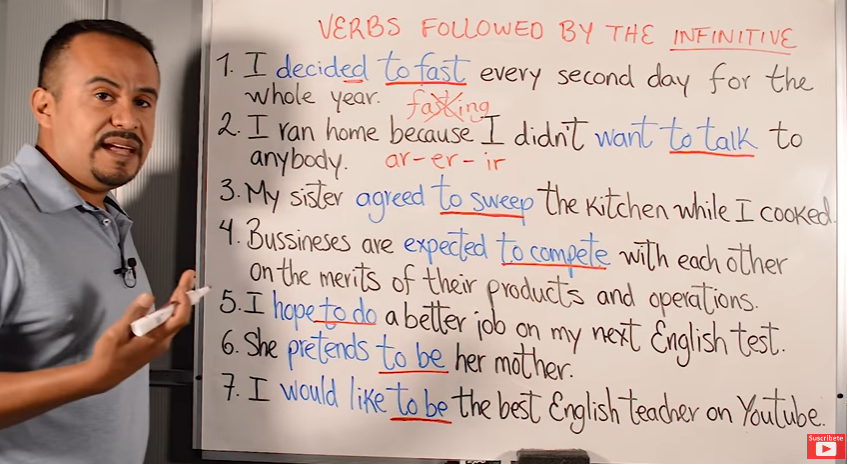 VERBS FOLLOWED BY THE INFINITIVE
1. I decided to fast every second day for the
whole year. fasting
2. I ran home because I didn't want to talk to
anybody. ar-er-ir
3. My sister agreed to sweep the kitchen while I cooked.
4. Bussineses are expected to compete with each other
on the merits of their products and operations.
5. I hope to do a better job on my next English test.
6. She pretends to be her mother.
7. I would like to be the best English teacher on Youtube.
Suscríbete